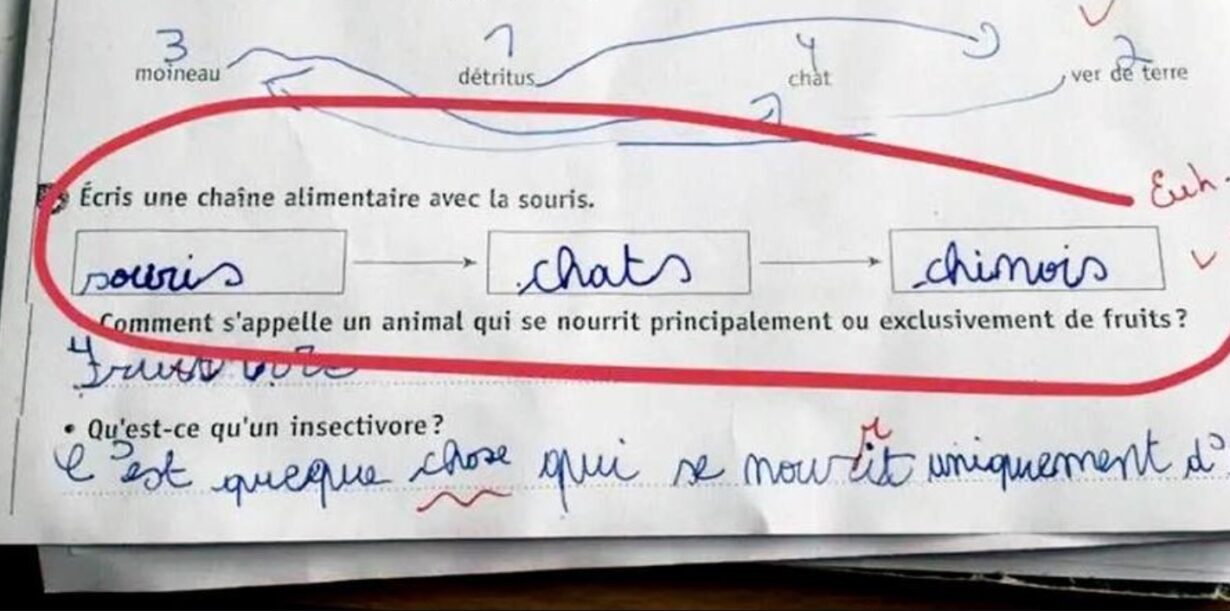 3 1 4 2
moineau détritus chat ver de terre
Écris une chaîne alimentaire avec la souris.
Euh
souris chats chinois
Comment s'appelle un animal qui se nourrit principalement ou exclusivement de fruits ?
• Qu'est-ce qu'un insectivore ?
r
C'est queque chose qui se nourit uniquement d'